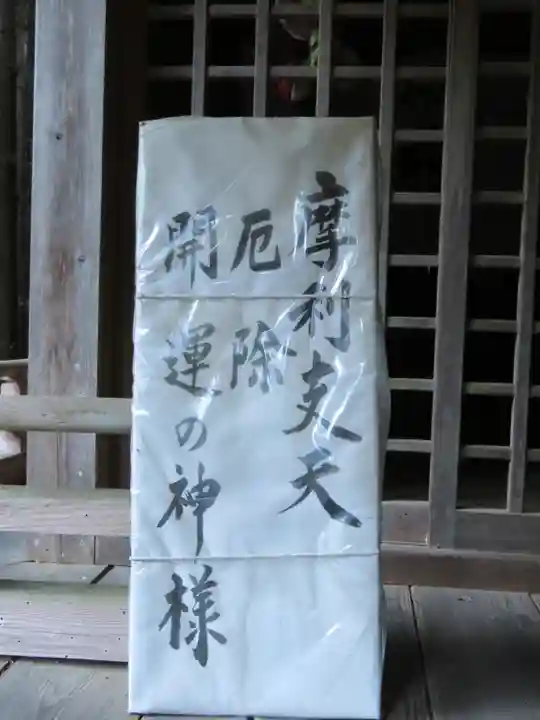 摩利支天
厄除
開運の神様